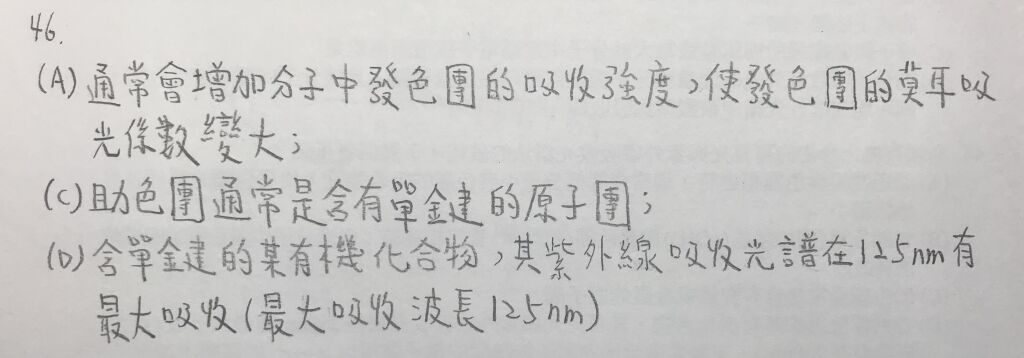 46.
(A) 通常會增加分子中發色團的吸收強度,使發色團的莫耳吸
光係數變大;
(C) 助色團通常是含有單鍵的原子團;
(D) 含單鍵的某有機化合物,其紫外線吸收光譜在125nm有
最大吸收(最大吸收波長125nm)